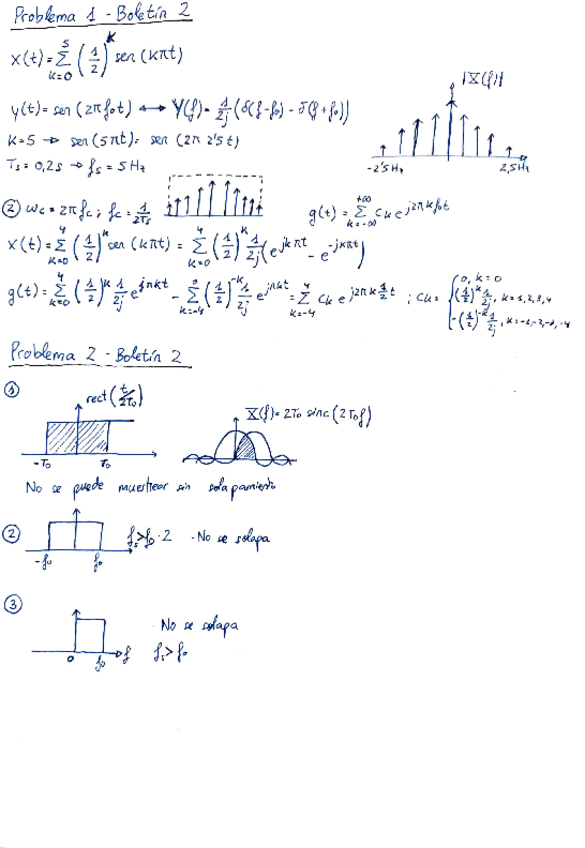 Problema 1 - Boletín 2
x(t)=∑_{k=0}^{5} (1/2)^k sen(kπt)
|X(f)|
y(t)= sen(2π f₀t) ⟷ Y(f)= 1/2j (δ(f-f₀) - δ(f+f₀))
k=5 → sen(5πt)= sen(2π 2'5t)
Ts=0,2s → fs=5Hz
-2'5Hz 2,5Hz
② ωc=2πfc; fc=1/2Ts
g(t)=∑_{k=-∞}^{+∞} Ck e^{j2πkf₀t}
x(t)=∑_{k=0}^{4} (1/2)^k sen(kπt) = ∑_{k=0}^{4} (1/2)^k 1/2j (e^{jkπt} - e^{-jkπt})
g(t)=∑_{k=0}^{4} (1/2)^k 1/2j e^{jπkt} - ∑_{k=-4}^{0} (1/2)^{-k} 1/2j e^{jπkt} = ∑_{k=-4}^{4} Ck e^{j2πk 1/2 t} ; Ck = { 0, k=0
(1/2)^k 1/2j, k=1,2,3,4
-(1/2)^{-k} 1/2j, k=-1,-2,-3,-4
Problema 2 - Boletín 2
①
rect(t/2T₀)
X(f)= 2T₀ sinc(2T₀f)
-T₀ T₀
No se puede muestrear sin solapamiento
② fs>f₀·2 · No se solapa
-f₀ f₀
③
· No se solapa
0 f₀ f fs>f₀